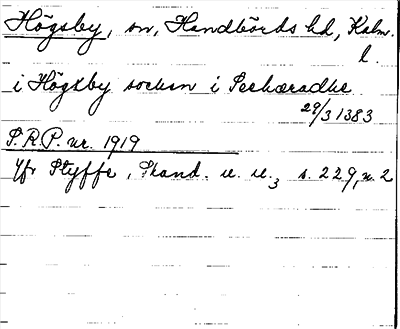 Högsby, sn, Handbörds hd, Kalm.
l.
i Högxby sochen i Seehæradhe
29/3 1383
S.R.P. nr. 1919
Jfr Styffe, Skand. u. u.3 s. 229, n. 2